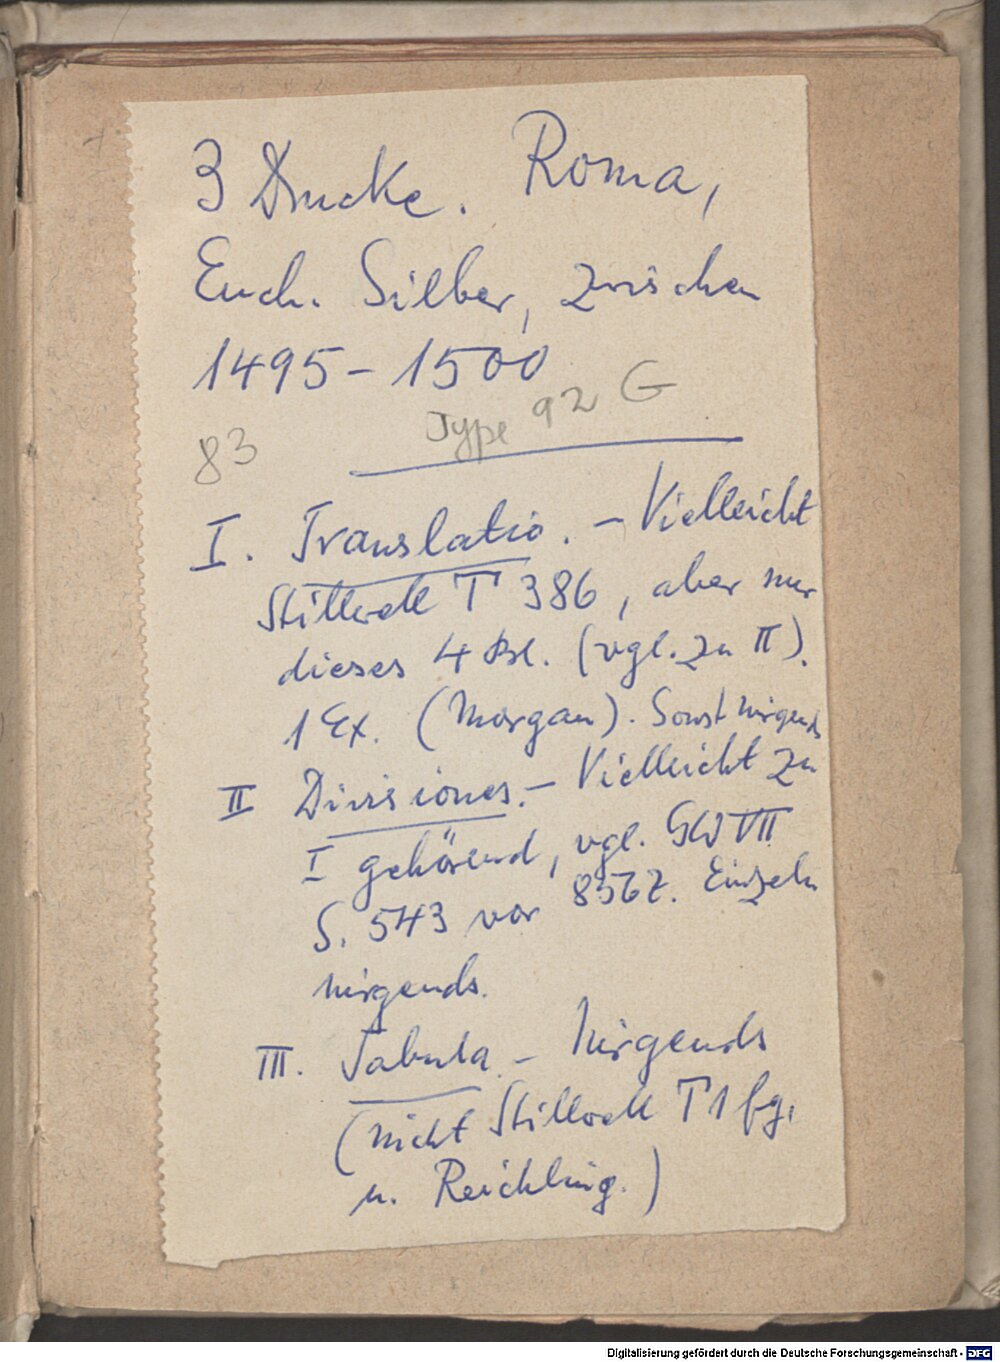 3 Drucke. Roma,
Euch. Silber, zwischen
1495 - 1500
Type 92 G
83
I. Translatio. – Vielleicht
Stillwell T 386, aber nur
dieses 4 Bl. (vgl. zu II).
1 Ex. (Morgan). Sonst nirgends
II Divisiones. – Vielleicht zu
I gehörend, vgl. GW VII
S. 543 vor 8567. Einzeln
nirgends.
III. Tabula. – Nirgends
(nicht Stillwell T 1 fg.
u. Reichling.)
Digitalisierung gefördert durch die Deutsche Forschungsgemeinschaft - DFG